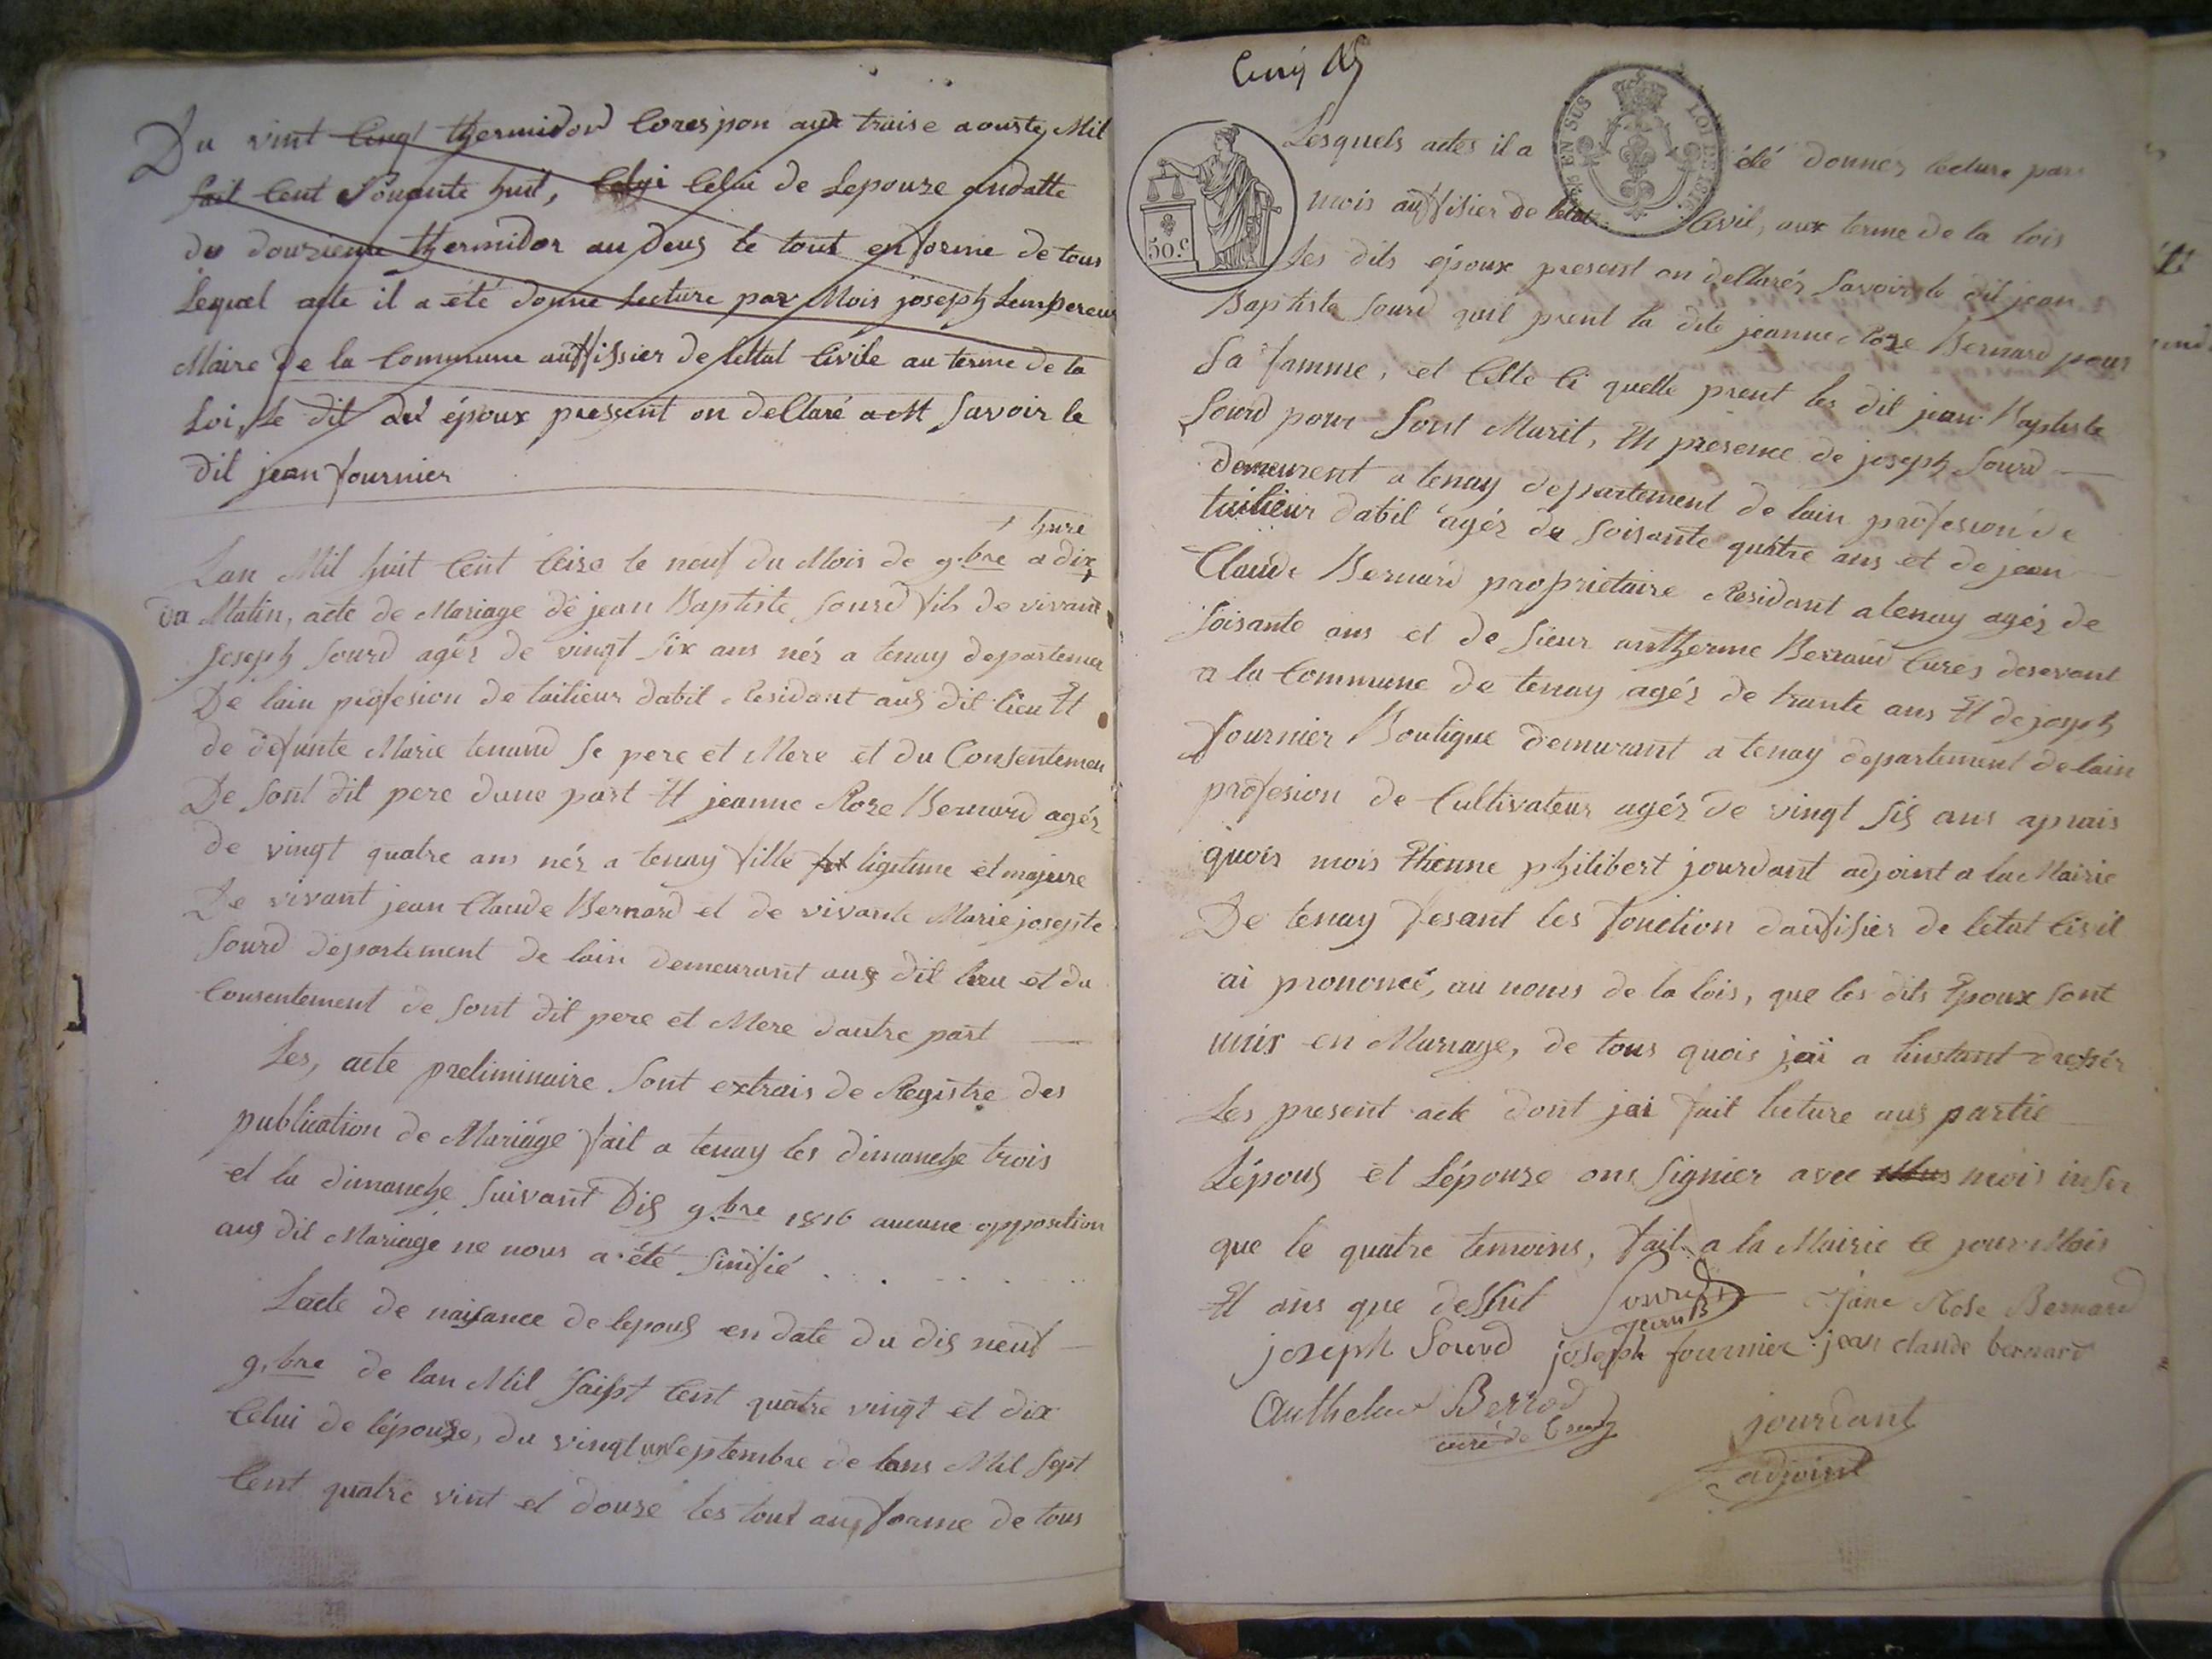 Du vint Cinq thermidor Corespon aux traise aouste, Mil
sait Cent Nonante huit, Celui Celui de Lepouze andatte
du douzieme thermidor au deus le tout en forme de tous
Lequel acte il a été donne Lecture par Mois joseph Lempereur
Maire de la Commune auffissier de lettat Civile au terme de la
Loi, Le dit dit époux present on dellaré a est Savoir le
dit jean fournier
hure
Lan Mil huit Cent Ceize le neuf du Mois de 9.bre a dix
du Matin, acte de Mariage de jean Baptiste Sourd fils de vivant
Joseph Sourd agés de vingt Six ans néz a tenay departemen
De lain profesion de tailieur dabit Residant aus dit lieu Et
de defunte Marie tenand Se pere et Mere et du Consentemen
De Sont dit pere dune part Et jeanne Roze Bernard agéz
de vingt quatre ans néz a tenay fille ligitime et majeure
De vivant jean Claude Bernard et de vivante Marie josepte
Sourd departement de lain demeurant aus dit lieu et du
Consentement de Sont dit pere et Mere dautre part
Les, acte preliminaire Sont extrais de Registre des
publication de Mariage fait a tenay les dimanche trois
et la dimanche Suivant Dis 9.bre 1816 aucune opposition
aus dit Mariage ne nous a été Sinifié
Lacte de naisance de lepous en date du dis neuf
9.bre de lan Mil Saipt Cent quatre vingt et dix
Celui de lépouze, du vingt un Septembre de lans Mil Sept
Cent quatre vint et douze les tout aus forme de tous
50.c
EN SUS
LOI DE 1816.
Lesquels actes il a été donnez lecture par
mois auffisier de letat Civil, aux terme de la lois
Les dits époux present on dellarés Savoir le dit jean
Baptiste Sourd quil prent la dite jeanne Roze Bernard pour
Sa famme, et Celle Ci quelle prent les dit jean Baptiste
Sourd pour Sont Marit, En presence de joseph Sourd
demeurent a tenay departement de lain profesion de
tailieur dabil agéz de Soisante quatre ans et de jean
Claude Bernard proprietaire Residant a tenay agéz de
Soisante ans et de Sieur antherme Berraud Cures deservant
a la Commune de tenay agés de trante ans Et de joseph
fournier Boutique demurant a tenay departement de lain
profesion de Cultivateur agéz de vingt Sis ans aprais
quois mois Etienne philibert jourdant adjoint a la Mairie
De tenay fesant les fonction daufisier de letat Civil
ai prononcé, au noms de la lois, que les dits Epoux Sont
unis en Mariage, de tous quois jai a linstant dressér
Les present acte dont jai fait lecture aus partie
Lépous et Lépouze ons Signier avec mois insi
que le quatre temoins, fait a la Mairie le jour Mois
Et ans que dessut Sourd jean B Jàne Rose Bernard
joseph Sourd joseph fournier jean claude bernard
Berrod jourdant
curé de adjoint